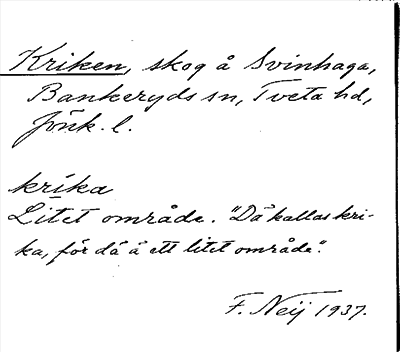 Kriken, skog å Svinhaga,
Bankeryds sn, Tveta hd,
Jönk. l.
kríka
Litet område. "Dä kallas kri-
ka, för dä ä ett litet område".
F. Neij 1937.